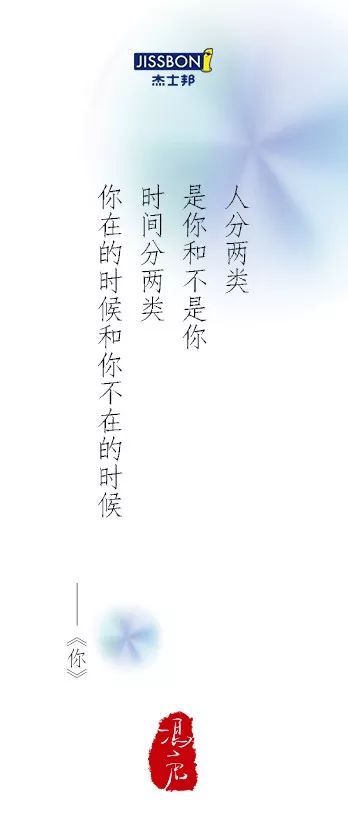 JISSBON
杰士邦
人分两类
是你和不是你
时间分两类
你在的时候和你不在的时候
——《你》
冯唐